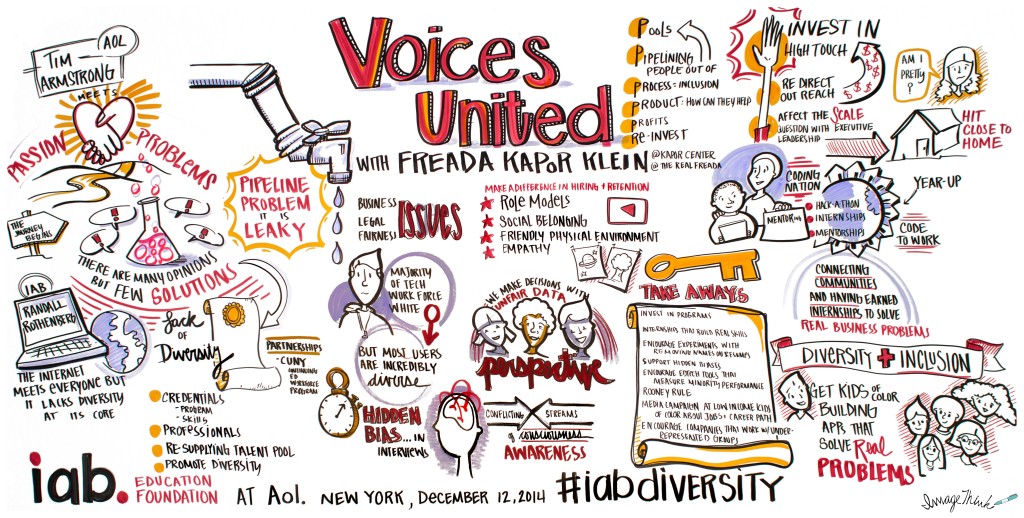 TIM ARMSTRONG
AOL
MEETS
PASSION
PROBLEMS
THE JOURNEY BEGINS
THERE ARE MANY OPINIONS
BUT FEW SOLUTIONS
IAB
RANDALL
ROTHENBERG
THE INTERNET
MEETS EVERYONE BUT
IT LACKS DIVERSITY
AT ITS CORE
Lack
OF
Diversity
PARTNERSHIPS
- CUNY
CONTINUING
ED
WORKFORCE
PROGRAM
CREDENTIALS
- PROGRAM
- SKILLS
PROFESSIONALS
RE-SUPPLYING TALENT POOL
PROMOTE DIVERSITY
iab.
EDUCATION
FOUNDATION
AT AOL. NEW YORK, DECEMBER 12, 2014
#iabdiVERSITY
PIPELINE
PROBLEM
IT IS
LEAKY
Voices
United
WITH FREADA KAPOR KLEIN
@KAPOR CENTER
@THE REAL FREADA
BUSINESS
LEGAL
FAIRNESS
ISSUES
MAKE A DIFFERENCE IN HIRING + RETENTION
ROLE MODELS
SOCIAL BELONGING
FRIENDLY PHYSICAL ENVIRONMENT
EMPATHY
MAJORITY
OF TECH
WORK FORCE
WHITE
BUT MOST USERS
ARE INCREDIBLY
diverse
HIDDEN
BIAS... IN
INTERVIEWS
WE MAKE DECISIONS WITH
UNFAIR DATA
perspective
CONFLICTING STREAMS
of consciousness
AWARENESS
POOLS
PIPELINING
PEOPLE OUT OF
PROCESS = INCLUSION
PRODUCT: HOW CAN THEY HELP
PROFITS
RE-INVEST
INVEST IN
HIGH TOUCH
RE DIRECT
OUT REACH
$ $ $ $ $ $
AFFECT THE SCALE
QUESTION WITH EXECUTIVE
LEADERSHIP
AM I
PRETTY
?
HIT
CLOSE TO
HOME
MENTORING
CODING
NATION
HACK-A-THON
INTERNSHIPS
MENTORSHIPS
YEAR-UP
CODE
TO WORK
CONNECTING
COMMUNITIES
AND HAVING EARNED
INTERNSHIPS TO SOLVE
REAL BUSINESS PROBLEMS
TAKE AWAYS
INVEST IN PROGRAMS
INTERNSHIPS THAT BUILD REAL SKILLS
ENCOURAGE EXPERIMENTS WITH
REMOVING NAMES ON RESUMES
SUPPORT HIDDEN BIASES
ENCOURAGE EDTECH TOOLS THAT
MEASURE MINORITY PERFORMANCE
ROONEY RULE
MEDIA CAMPAIGN AT LOW INCOME KIDS
OF COLOR ABOUT JOBS + CAREER PATH
ENCOURAGE COMPANIES THAT WORK W/ UNDER-
REPRESENTED GROUPS
DIVERSITY + INCLUSION
GET KIDS OF COLOR
BUILDING
APPS THAT
SOLVE Real
PROBLEMS
ImageThink